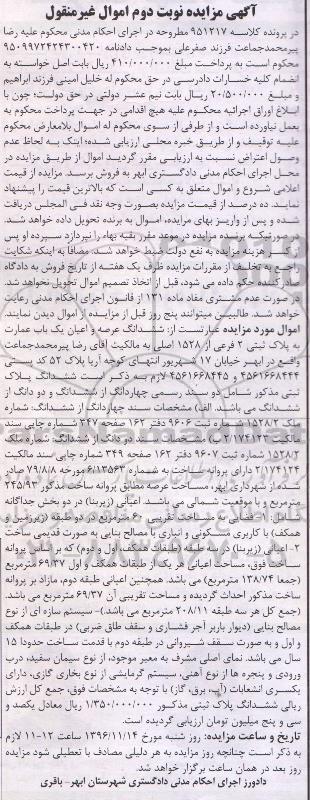 آگهی مزایده نوبت دوم اموال غیرمنقول
در پرونده کلاسه ۹۵۱۲۱۷ مطروحه در اجرای احکام مدنی محکوم علیه رضا
پیرمحمدجماعت فرزند صفرعلی بموجب دادنامه ۹۵۰۹۹۷۲۴۲۴۳۰۰۴۲۰
محکوم است به پرداخت مبلغ ۴۱۰/۰۰۰/۰۰۰ ریال بابت اصل خواسته به
انضمام کلیه خسارات دادرسی در حق محکوم له خلیل امینی فرزند ابراهیم
و مبلغ ۲۰/۵۰۰/۰۰۰ ریال بابت نیم عشر دولتی در حق دولت؛ چون با
ابلاغ اوراق اجرائیه محکوم علیه هیچ اقدامی در جهت پرداخت محکوم به
بعمل نیاورده است و از طرفی از سوی محکوم له اموال بلامعارض محکوم
علیه توقیف و از طریق خبره محلی ارزیابی شده؛ اینک به لحاظ عدم
وصول اعتراض نسبت به ارزیابی مقرر گردید اموال از طریق مزایده در
محل اجرای احکام مدنی دادگستری ابهر به فروش برسد. مزایده از قیمت
اعلامی شروع و اموال متعلق به کسی است که بالاترین قیمت را پیشنهاد
نماید. ده درصد از قیمت مزایده بصورت وجه نقد فی المجلس دریافت
شده و پس از واریز بهای مزایده، اموال به برنده تحویل داده خواهد شد.
در صورتیکه برنده مزایده در موعد مقرر بقیه بهاء را نپردازد سپرده او پس
از کسر هزینه مزایده به نفع دولت ضبط خواهد شد. مضافا به اینکه شکایت
راجع به تخلف از مقررات مزایده ظرف یک هفته از تاریخ فروش به دادگاه
صادرکننده حکم داده می شود، قبل از اتخاذ تصمیم اموال تحویل نخواهد شد.
در صورت عدم مشتری مفاد ماده ۱۳۱ از قانون اجرای احکام مدنی رعایت
خواهد شد. طالبین میتوانند پنج روز قبل از مزایده از اموال دیدن نمایند.
اموال مورد مزایده عبارتست از: ششدانگ عرصه و اعیان یک باب عمارت
به پلاک ثبتی ۲ فرعی از ۱۵۲۸ اصلی به مالکیت آقای رضا پیرمحمدجماعت
واقع در ابهر خیابان ۱۷ شهریور انتهای کوچه آریا پلاک ۵۲ کد پستی
۴۵۶۱۶۶۸۴۴۴ و ۴۵۶۱۶۶۸۴۴۵ لازم به ذکر است ششدانگ پلاک
ثبتی مذکور شامل دو سند رسمی چهاردانگ از ششدانگ و دو دانگ از
ششدانگ می باشد. الف) مشخصات سند چهاردانگ از ششدانگ: شماره
ملک ۱۵۲۸/۲ شماره ثبت ۹۶۰۶ دفتر ۱۶۲ صفحه ۲۴۷ شماره چاپی سند
مالکیت ۲/۱۷۴۱۲۳ ب) مشخصات سند دو دانگ از ششدانگ: شماره ملک
۱۵۲۸/۲ شماره ثبت ۹۶۰۷ دفتر ۱۶۲ صفحه ۳۴۹ شماره چاپی سند مالکیت
۲/۱۷۴۱۲۴ دارای پروانه ساخت به شماره ۶۱۱۳۵۶۳ مورخه ۷۹/۸/۸ صادر
شده از شهرداری ابهر، مساحت عرصه مطابق پروانه ساخت مذکور ۲۴۵/۹۳
مترمربع و با موقعیت شمالی می باشد. اعیانی (زیربنا) در دو بخش جداگانه
شامل: ۱- فضایی به مساحت تقریبی ۶۰ مترمربع در دو طبقه (زیرزمین و
همکف) با کاربری مسکونی و انباری با مصالح بنایی به صورت قدیمی ساخت
۲- اعیانی (زیربنا) در سه طبقه طبقات همکف، اول و دوم (که برابر با پروانه
ساخت فوق، مساحت اعیانی هر یک از طبقات همکف و اول ۶۹/۳۷ مترمربع
(جمعا ۱۳۸/۷۴ مترمربع) می باشد. همچنین اعیانی طبقه دوم، مازاد بر پروانه
ساخت مذکور احداث گردیده و مساحت تقریبی آن ۶۹/۳۷ مترمربع می باشد.
(جمع کل هر سه طبقه ۲۰۸/۱۱ مترمربع می باشد)- سیستم سازه ای از نوع
مصالح بنایی (دیوار باربر آجر فشاری و سقف طاق ضربی) در طبقات همکف
و اول و به صورت سقف شیروانی در طبقه دوم با قدمت ساخت حدودا ۱۵
سال می باشد. نمای اصلی مشرف به معبر موجود، از نوع سیمان سفید، درب
ورودی و پنجره ها از نوع آهنی، سیستم گرمایشی از نوع بخاری گازی، دارای
یکسری انشعابات (آب، برق، گاز) با توجه به مشخصات فوق، جمع کل ارزش
ریالی ششدانگ پلاک ثبتی مذکور ۱/۳۵۰/۰۰۰/۰۰۰ ریال معادل یکصد و
سی و پنج میلیون تومان ارزیابی گردیده است.
تاریخ و ساعت مزایده: روز شنبه مورخ ۱۳۹۶/۱۱/۱۴ ساعت ۱۲-۱۱ لازم
به ذکر است چنانچه روز مزایده به هر دلیلی مصادف با تعطیلی شود مزایده
روز بعد در همان ساعت برگزار خواهد شد.
دادورز اجرای احکام مدنی دادگستری شهرستان ابهر- باقری